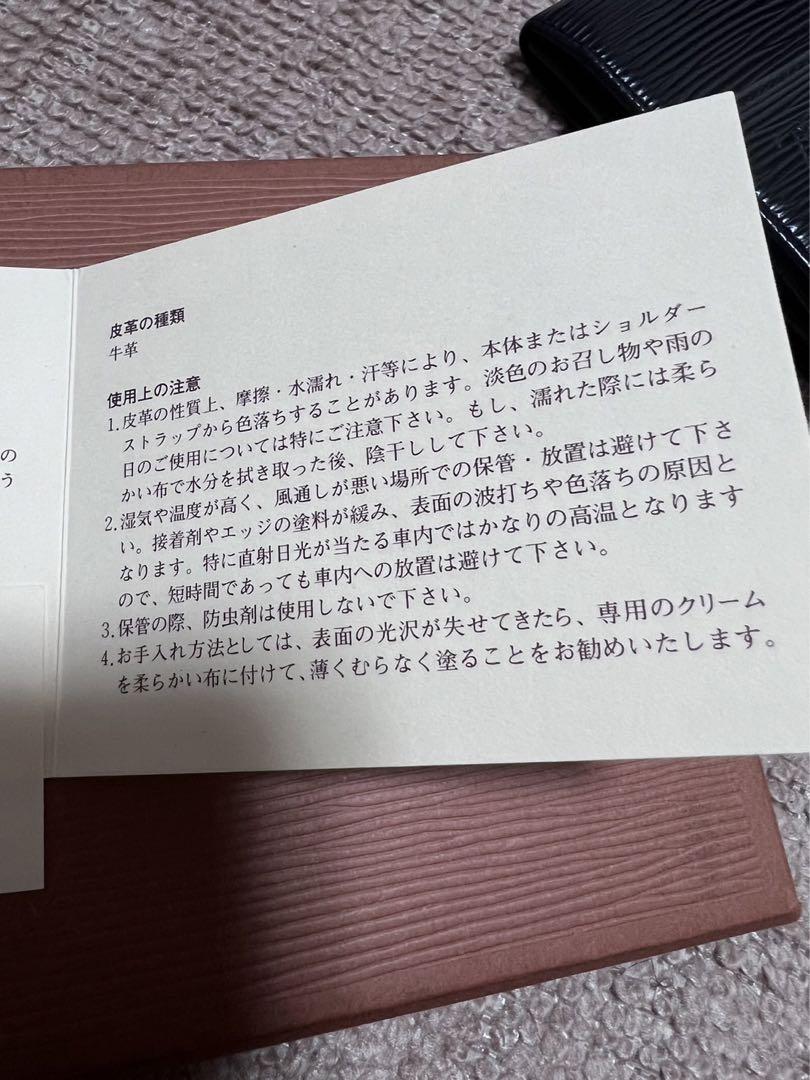 皮革の種類
牛革
使用上の注意
1.皮革の性質上、摩擦・水濡れ・汗等により、本体またはショルダー
ストラップから色落ちすることがあります。淡色のお召し物や雨の
日のご使用については特にご注意下さい。もし、濡れた際には柔ら
かい布で水分を拭き取った後、陰干しして下さい。
2.湿気や温度が高く、風通しが悪い場所での保管・放置は避けて下さ
い。接着剤やエッジの塗料が緩み、表面の波打ちや色落ちの原因と
なります。特に直射日光が当たる車内ではかなりの高温となります
ので、短時間であっても車内への放置は避けて下さい。
3.保管の際、防虫剤は使用しないで下さい。
4.お手入れ方法としては、表面の光沢が失せてきたら、専用のクリーム
を柔らかい布に付けて、薄くむらなく塗ることをお勧めいたします。
の
う